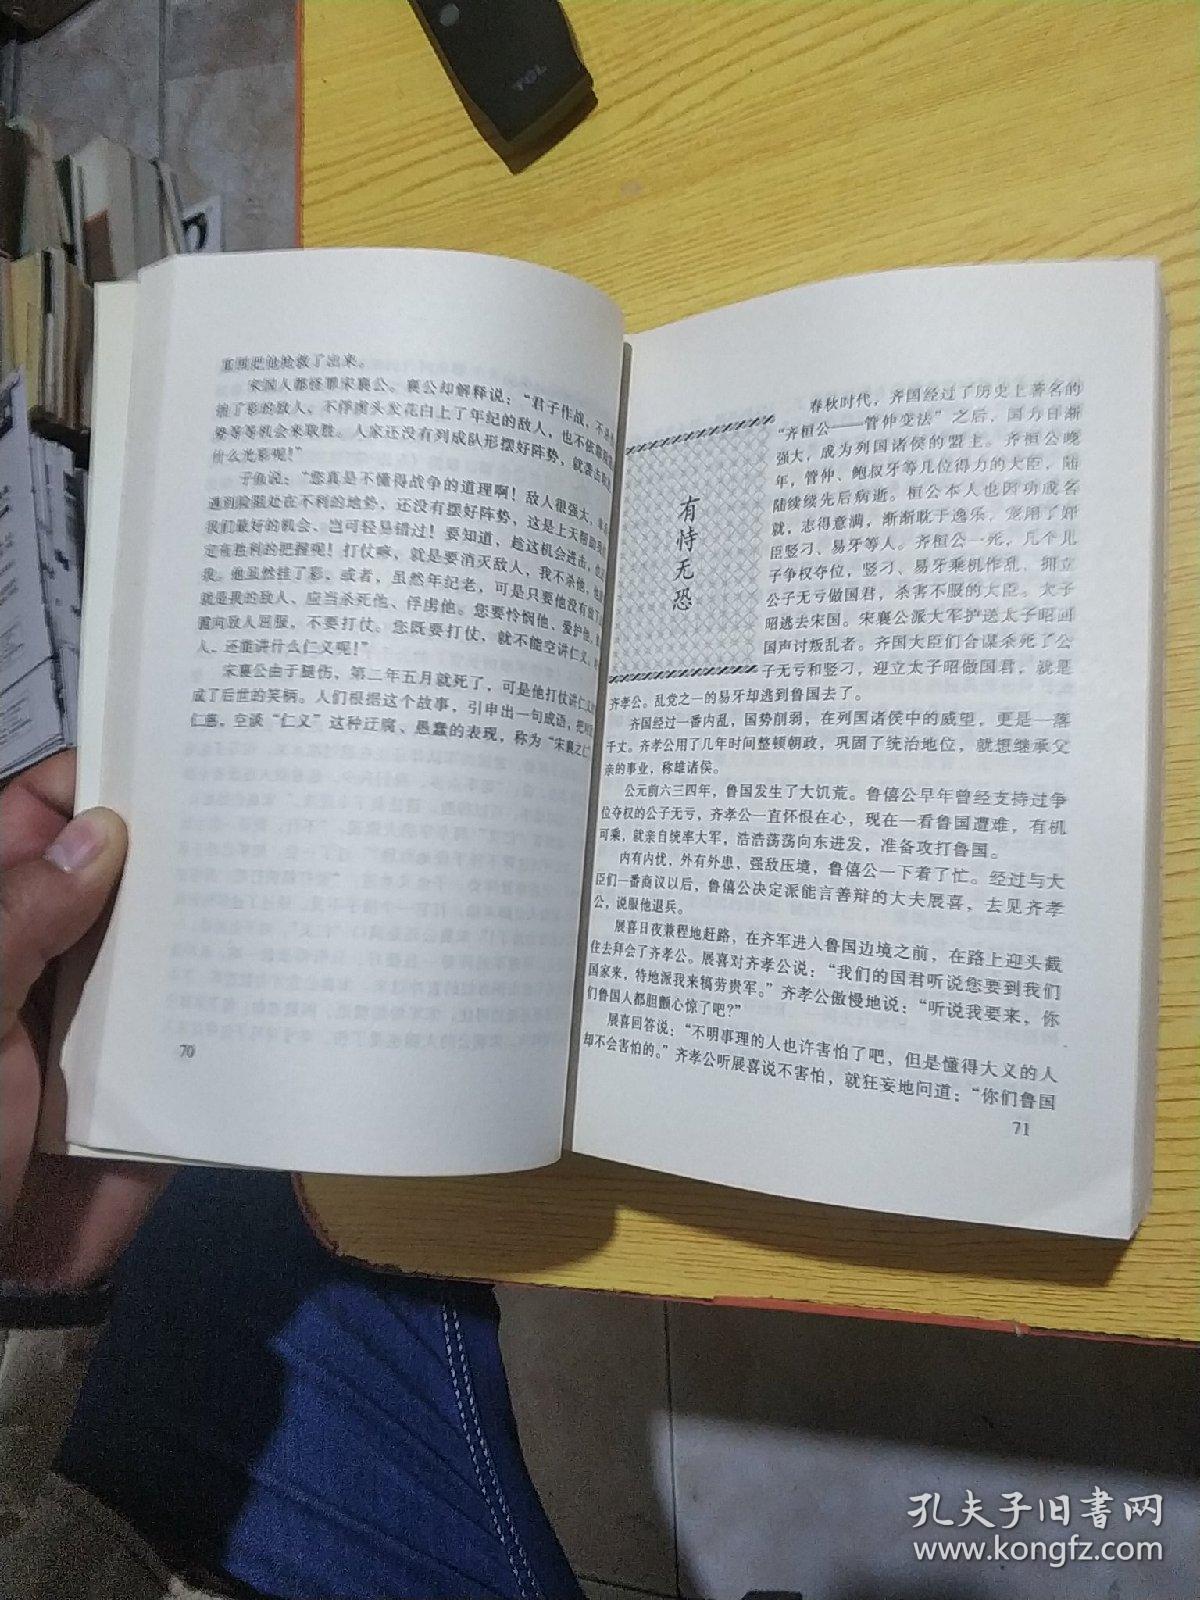 TCL
宋国人都怪罪宋襄公。襄公却解释说：“君子作战，不
治了彩的敌人、不俘虏头发花白上了年纪的敌人，也不依靠
势等等机会来取胜。人家还没有列成队形摆好阵势，就袭击
什么光彩呢！”
子鱼说：“您真是不懂得战争的道理啊！敌人很强大，
遇到险阻处在不利的地势，还没有摆好阵势，这是上天帮助
我们最好的机会、岂可轻易错过！要知道，趁这机会进击，也
定有胜利的把握呢！打仗嘛，就是要消灭敌人，我不杀他，他
我。他虽然挂了彩、或者，虽然年纪老，可是只要他没有放下
就是我的敌人、应当杀死他、俘虏他。您要怜悯他、爱护他，
着向敌人屈服，不要打仗。您既要打仗，就不能空讲仁义，
人、还能讲什么仁义呢！”
宋襄公由于腿伤，第二年五月就死了，可是他打仗讲仁义
成了后世的笑柄。人们根据这个故事，引申出一句成语，把
仁慈，空谈“仁义”这种迂腐、愚蠢的表现，称为“宋襄之仁”
70
有恃无恐
春秋时代，齐国经过了历史上著名的
“齐桓公——管仲变法”之后，国力日渐
强大，成为列国诸侯的盟主。齐桓公晚
年，管仲、鲍叔牙等几位得力的大臣，陆
陆续续先后病逝。桓公本人也因功成名
就，志得意满，渐渐耽于逸乐，宠用了奸
臣竖刁、易牙等人。齐桓公一死，几个儿
子争权夺位，竖刁、易牙乘机作乱，拥立
公子无亏做国君，杀害不服的大臣。太子
昭逃去宋国。宋襄公派大军护送太子昭回
国声讨叛乱者。齐国大臣们合谋杀死了公
子无亏和竖刁，迎立太子昭做国君，就是
齐孝公。乱党之一的易牙却逃到鲁国去了。
齐国经过一番内乱，国势削弱，在列国诸侯中的威望，更是一落
千丈。齐孝公用了几年时间整顿朝政，巩固了统治地位，就想继承父
亲的事业，称雄诸侯。
公元前六三四年，鲁国发生了大饥荒。鲁僖公早年曾经支持过争
位夺权的公子无亏，齐孝公一直怀恨在心，现在一看鲁国遭难，有机
可乘，就亲自统率大军，浩浩荡荡向东进发，准备攻打鲁国。
内有内忧，外有外患，强敌压境，鲁僖公一下着了忙。经过与大
臣们一番商议以后，鲁僖公决定派能言善辩的大夫展喜，去见齐孝
公，说服他退兵。
展喜日夜兼程地赶路，在齐军进入鲁国边境之前，在路上迎头截
住去拜会了齐孝公。展喜对齐孝公说：“我们的国君听说您要到我们
国家来，特地派我来犒劳贵军。”齐孝公傲慢地说：“听说我要来，你
们鲁国人都胆颤心惊了吧？”
展喜回答说：“不明事理的人也许害怕了吧，但是懂得大义的人
却不会害怕的。”齐孝公听展喜说不害怕，就狂妄地问道：“你们鲁国
71
孔夫子旧书网
www.kongfz.com